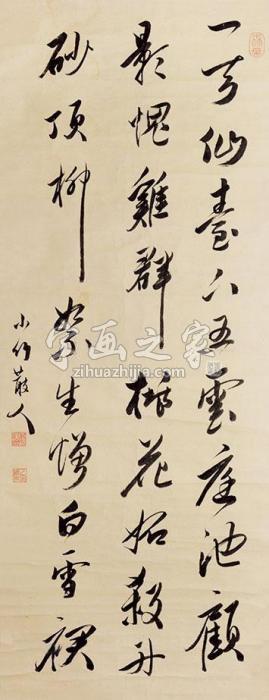 一下仙臺八五雲庭池顧
影愧雞群桃花妬殺丹
砂頂柳絮生憎白雪裙
小竹散人
字画之家
zihuazhijia.com